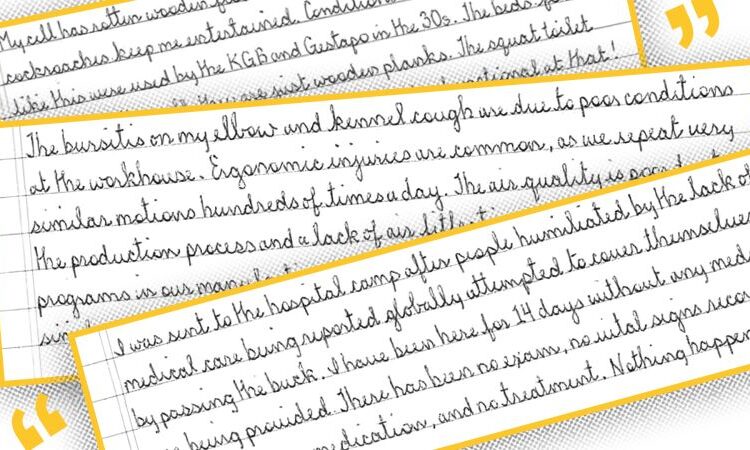 My cell has rotten wooden
entertained. Condition
cockroaches keep me
like this were used by the KGB and Gestapo in the 30s. The beds
are just wooden planks. The squat toilet
at that!
The bursitis on my elbow and kennel cough are due to poor conditions
at the workhouse. Ergonomic injuries are common, as we repeat very
similar motions hundreds of times a day. The air quality is
the production process and a lack of air
programs in our
I was sent to the hospital camp after people humiliated by the lack of
medical care being reported globally attempted to cover themselves
by passing the buck. I have been here for 14 days without any med
being provided. There has been no exam, no vital signs
medication, and no treatment. Nothing happen